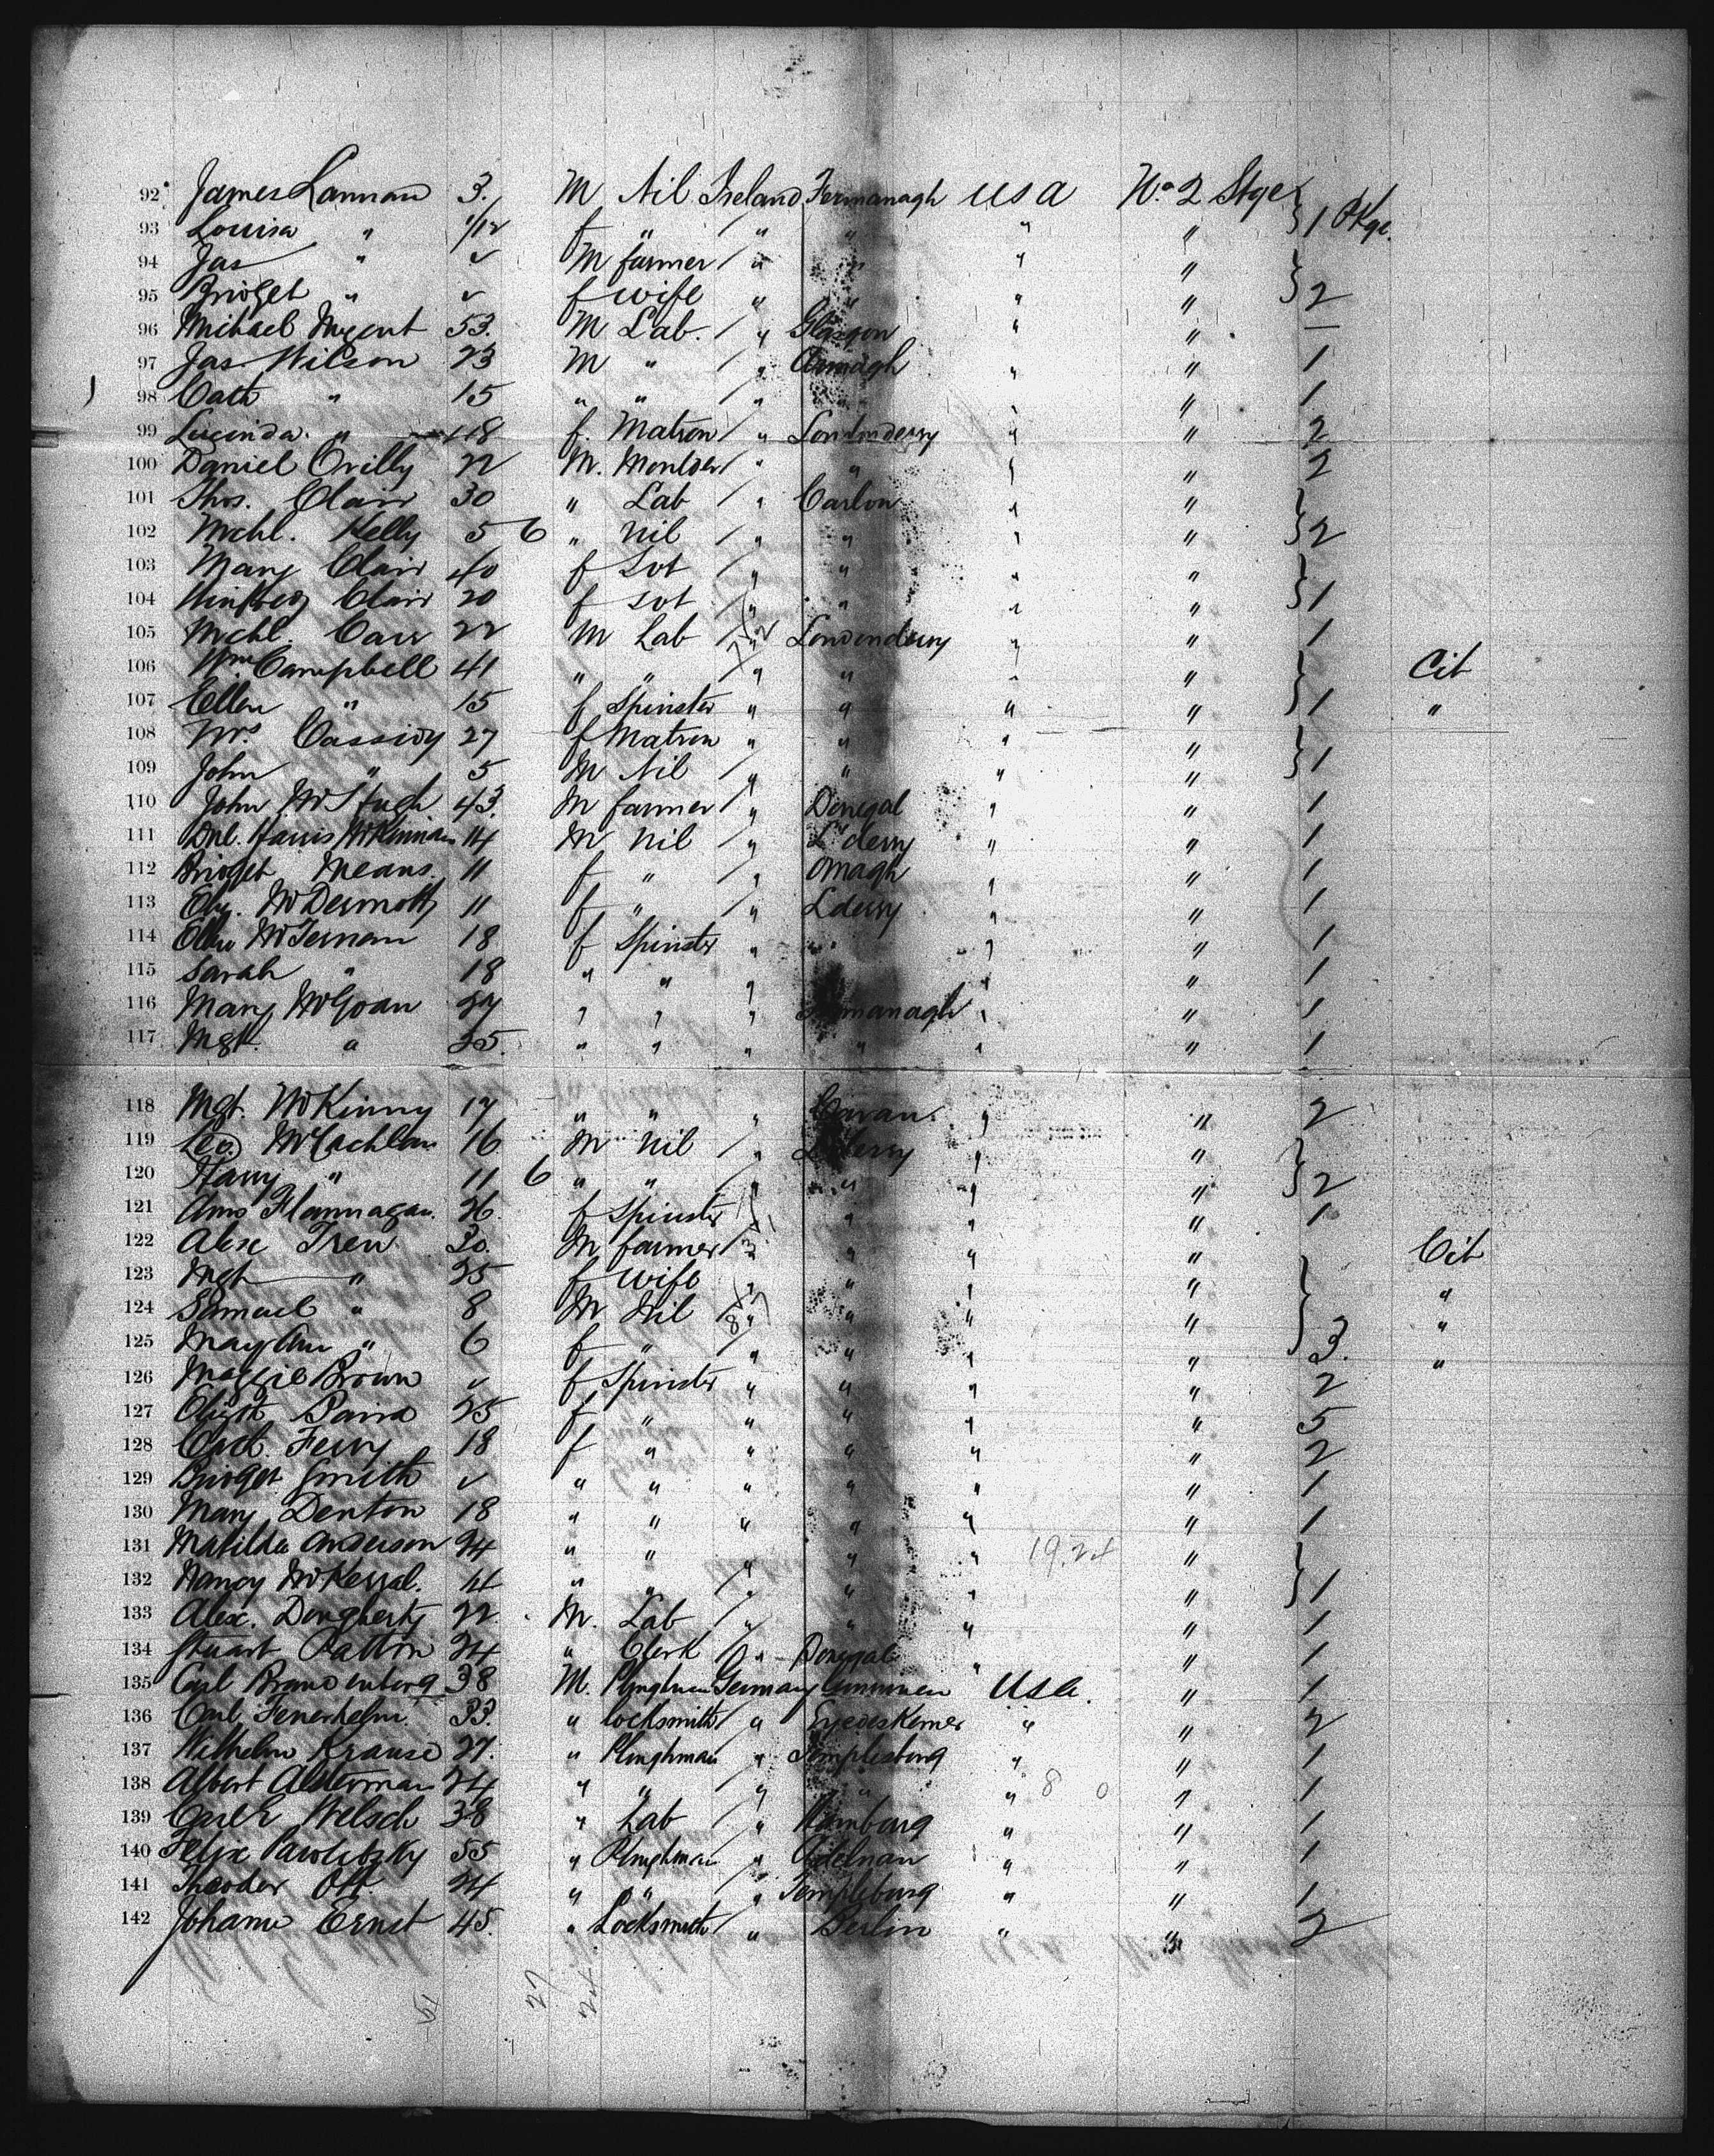 92 James Lannan 3. M Nil Ireland Fermanagh USA No 2 Stge } 1 Pkge.
93 Louisa " 1/12 f " " " " "
94 Jas " ✓ M farmer " " " "
95 Bridget " ✓ f wife " " " " } 2
96 Michael Nugent 53. M Lab. " Glasgow " " 1
97 Jas Wilson 23 M " " Armagh " " 1
98 Cath " 15 " " " " " " 1
99 Lucinda " 18 f. Matron " Londonderry " " 2
100 Daniel Orilly 22 M. Moulder " " " " 2
101 Thos. Clair 30 " Lab " Carlow " "
102 Mchl. Kelly 5 6 " Nil " " " " } 2
103 Mary Clair 40 f Svt " " " "
104 Clair 20 f Svt " " " " } 1
105 Mchl. Carr 22 M Lab " Londonderry " " 1
106 Wm Campbell 41 " " " " " " Cit
107 Ellen " 15 f Spinster " " " " } 1 "
108 Mrs Cassidy 27 f Matron " " " "
109 John " 5 M Nil " " " " } 1
110 John McHugh 43. M farmer " Donegal " " 1
111 Dnl. 14 M Nil " L'derry " " 1
112 Bridget Means. 11 f " " Omagh " " 1
113 Elz. McDermott 11 f " " Lderry " " 1
114 Ellen McTernan 18 f Spinster " " " " 1
115 Sarah " 18 " " " " " " 1
116 Mary McGoan 24 " " " Fermanagh " " 1
117 Mgt. " 25. " " " " " " 1
118 Mgt. McKinny 17 " " " Cavan. " " 2
119 Leo. McLachlan 16 M Nil " Lderry " "
120 Harry " 11 6 " " " " " " } 2
121 Ann Flannagan. 26. f Spinster " " " 1
122 Alex Tren. 30. M farmer " " " Cit
123 Mgt " 25 f wife " " " " "
124 Samuel " 8 M Nil " " " " "
125 MaryAnn " 6 f " " " " " } 3. "
126 Maggie Brown ✓ f Spinster " " " " 2
127 Elizth Baird 25 f " " " " " 5
128 Cath. Ferry 18 f " " " " " 2
129 Bridget Smith ✓ " " " " " " 1
130 Mary Denton 18 " " " " " " 1
131 Matilda Anderson 24 " " " " " 19.24 "
132 Nancy 11 " " " " " " } 1
133 Alex. Dougherty 22. M. Lab " " " " 1
134 Stuart Patton 24 " Clerk " Donegal " " 1
135 Carl Brandenberg 38 M. Ploughman Germany USA. " 1
136 Carl Feuerhelm 33. " Locksmith " " " 2
137 Wilhelm Krause 27. " Ploughman " Templesburg " " 1
138 Albert Alderman 24 " " " " " 8 0 " 1
139 Carl E Welsch 38 " Lab " Hamburg " " 1
140 Felix 55 " Ploughman " " " 1
141 Theodor Ott. 24 " " " Templeburg " " 1
142 Johann Ernst 45. " Locksmith " Berlin " " 2
51 27 24